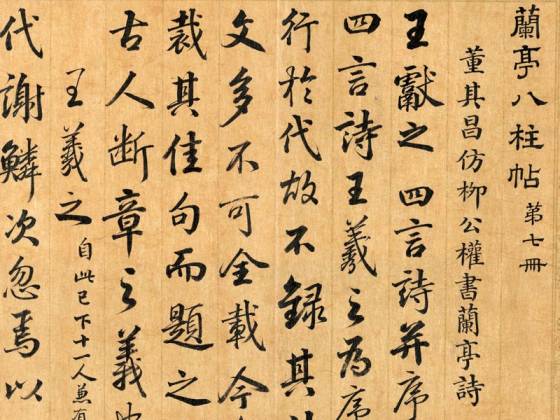 蘭亭八柱帖 第七冊
董其昌仿柳公權書蘭亭詩
王獻之四言詩并序
四言詩王羲之為序
行於代故不錄其詩
文多不可全載今各
裁其佳句而題之
古人斷章之義也
王羲之 自此已下十一人兼有
代謝鱗次忽焉以